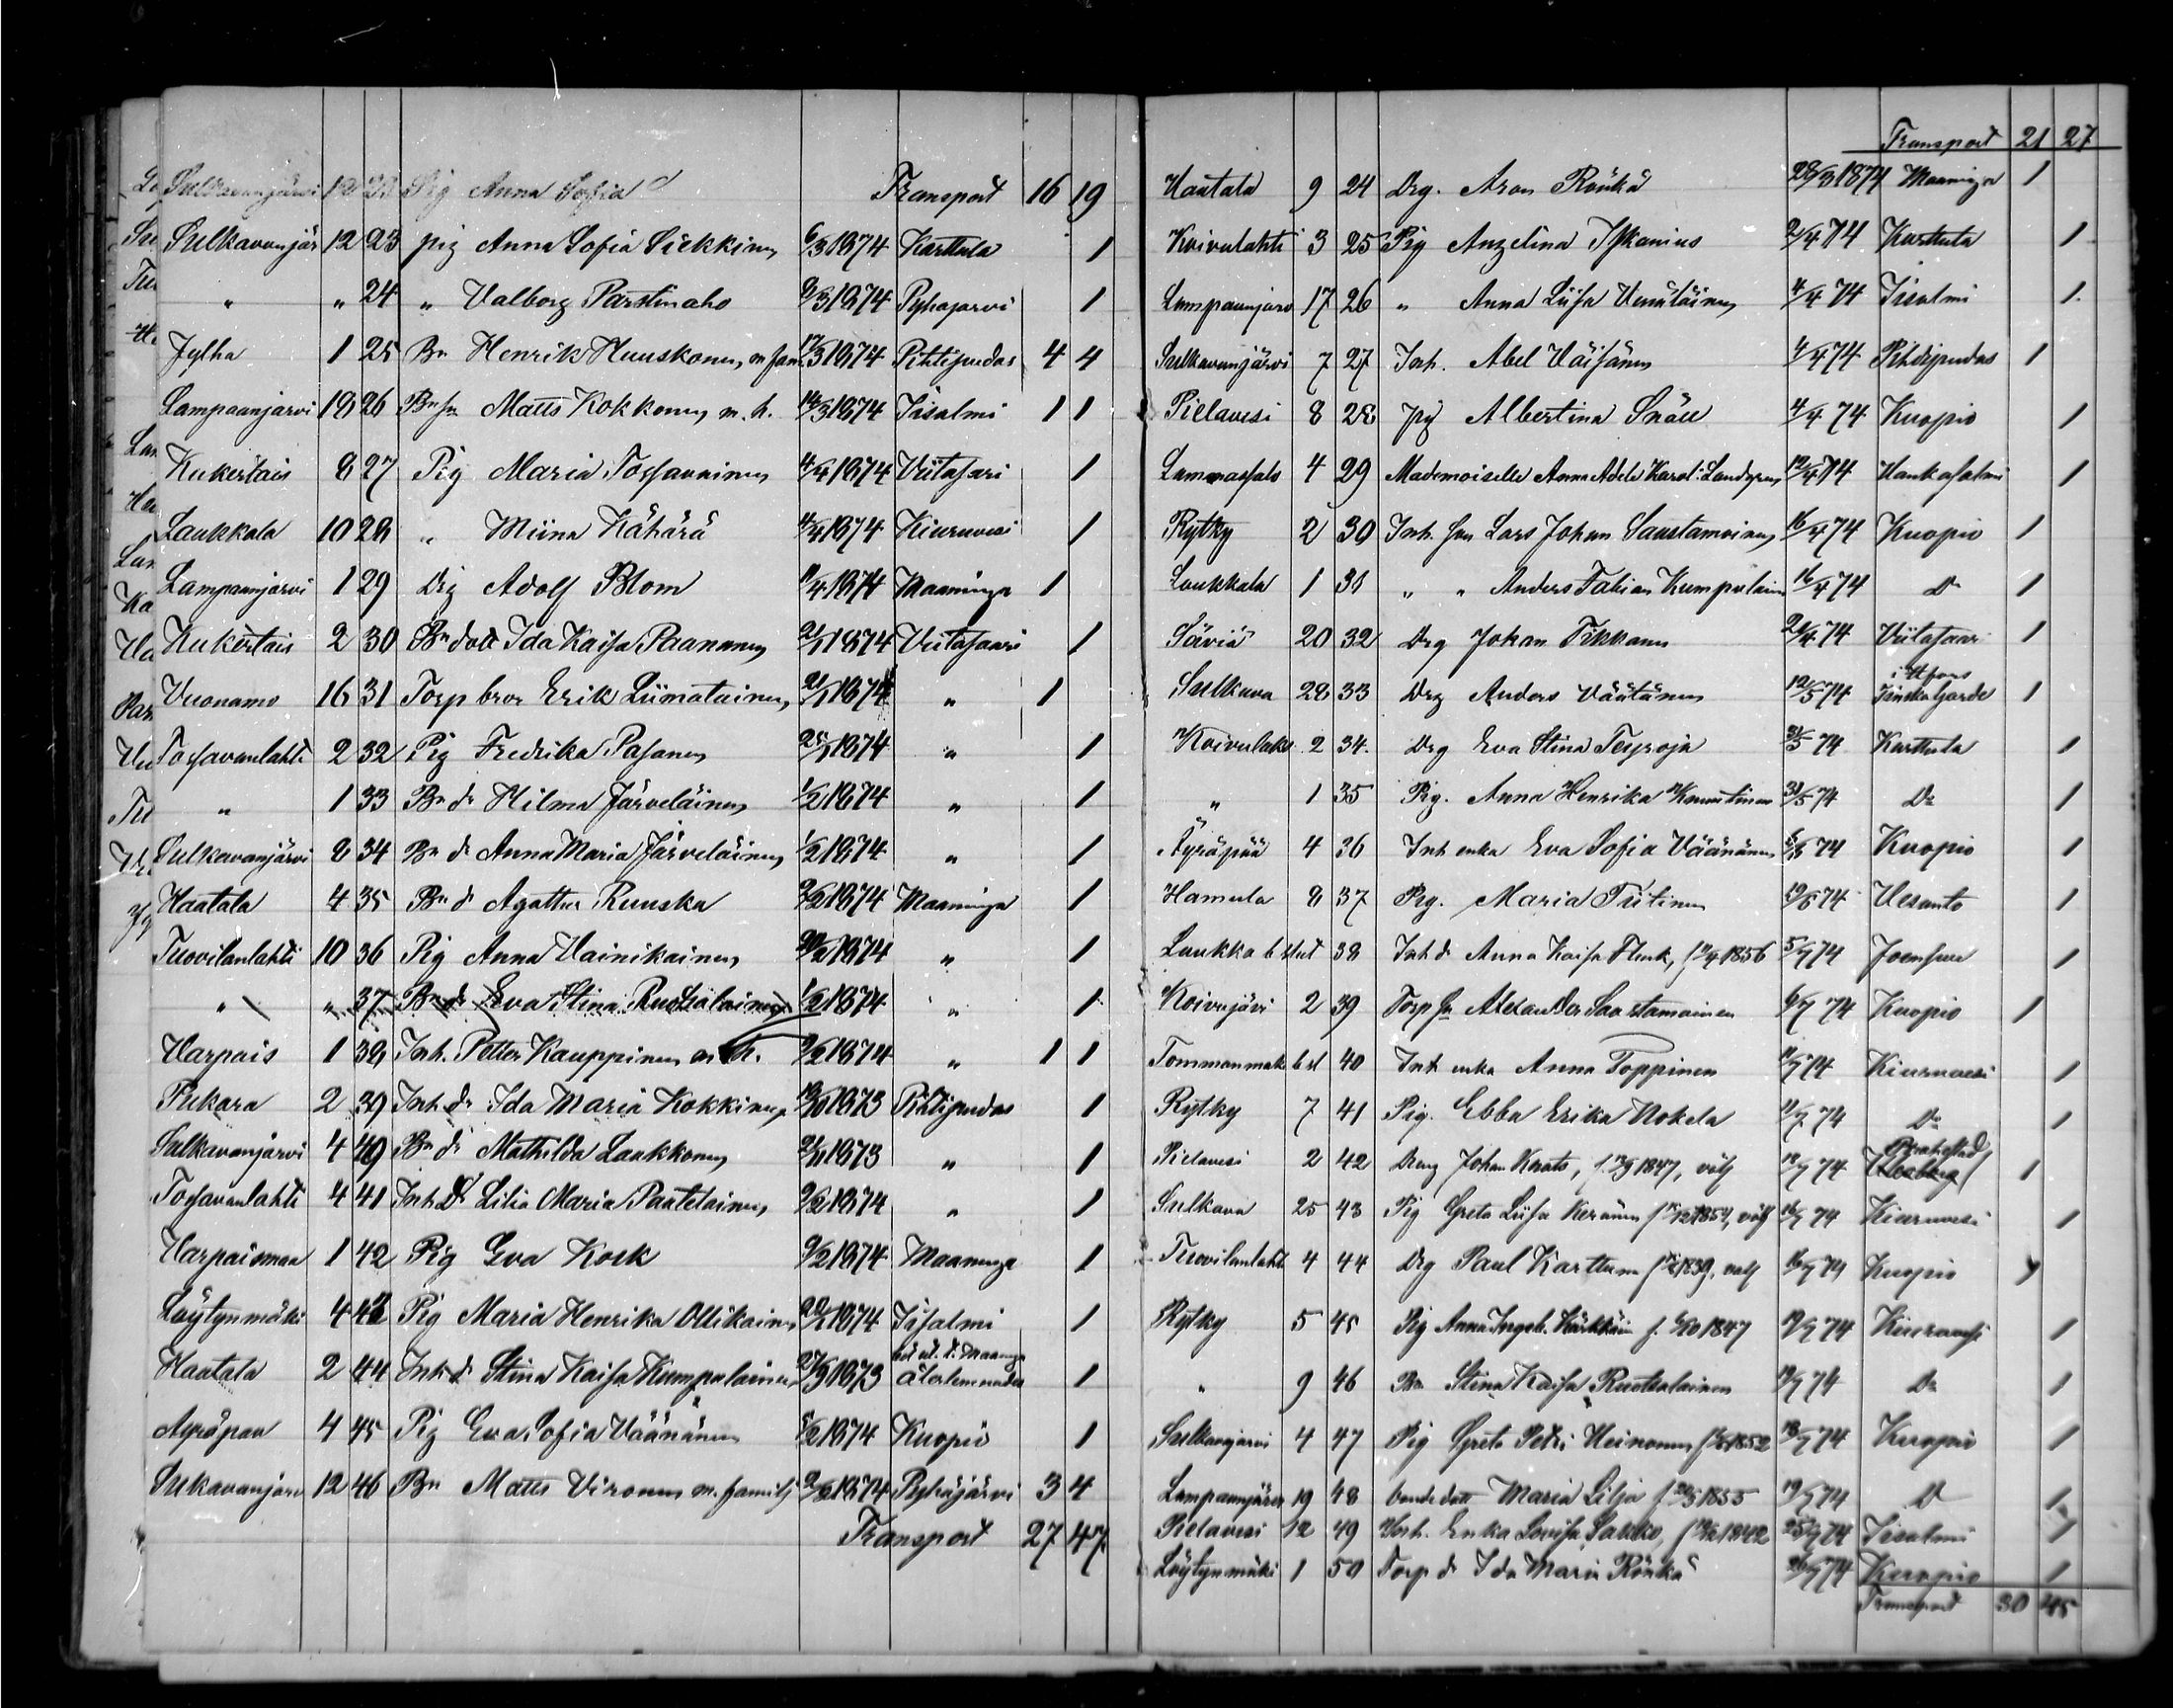 Sulkavanjärvi 12 23 Pig Anna Sofia Transport 16 19
Sulkavanjär 12 23 pig Anna Sofia Siekkinen 6/3 1874 Karttula 1
" " 24 " Valborg Parstinaho 9/3 1874 Pyhäjärvi 1
Jylha 1 25 Bn Henrik Huuskonen, m fam 17/3 1874 Pihtipudas 4 4
Lampaanjarvi 18 26 Bnsn Matts Kokkonen m. h. 14/3 1874 Iisalmi 1 1
Kukertais 8 27 Pig Maria Tossavainen 4/4 1874 Viitasari 1
Laukkala 10 28 " Miina Kähärä 4/4 1874 Kiuruvesi 1
Lampaanjarvi 1 29 Drg Adolf Blom 11/4 1874 Maaninga 1
Kukertais 2 30 Bn dott Ida Kaisa Paananen 21/1 1874 Viitasaari 1
Vuonamo 16 31 Torp bror Erik Liimatainen, 21/1 1874 " 1
Tossavanlahti 2 32 Pig Fredrika Pasanen 25/1 1874 " 1
" 1 33 Bn dr Hilma Järveläinen 1/2 1874 " 1
Sulkavanjärvi 8 34 Bn dr Anna Maria Järveläinen 1/2 1874 " 1
Haatala 4 35 Bn dr Agatha Ruuska 2/2 1874 Maaninga 1
Tuovilanlahti 10 36 Pig Anna Vainikainen 1874 " 1
" " 37 Bn dr Eva Stina Ruotsalainen 1/2 1874 " 1
Varpais 1 38 Inh. Petter Kauppinen m h. 9/2 1874 " 1 1
Pukara 2 39 Inh dr Ida Maria Kokkinen 1873 Pihtipudas 1
Sulkavanjärvi 4 40 Bn dr Mathilda Laukkonen 1873 " 1
Tossavanlahti 4 41 Inh Dr Lilia Maria Paatelainen, 9/2 1874 " 1
Varpaismaa 1 42 Pig Eva Kock 9/2 1874 Maaninga 1
Löytynmäki 4 43 Pig Maria Henrika Ollikainen 1874 Iisalmi 1
Haatala 2 44 Inh dr Stina Kaisa Kumpulainen 27/9 1873 1
Äyräpää 4 45 Pig Eva Sofia Väänänen 1874 Kuopio 1
Sulkavanjärv 12 46 Bn Matts Vironen m. familj 1874 Pyhäjärvi 3 4
Transport 27 47
Transport 21 27
Haatala 9 24 Drg. Aron Rönkä 28/3 1874 Maaninga 1
Koivulahti 3 25 Pig Angelina Ylkanius 2/4 74 Karttula 1
Lampaanjärv 17 26 " Anna Liisa Venäläinen 4/4 74 Iisalmi 1
Sulkavanjärvi 7 27 Inh. Abel Väisänen 4/4 74 Pihtipudas 1
Pielavesi 8 28 Pig Albertina Snäll 4/4 74 Kuopio 1
Lammassalo 4 29 Mademoiselle Anna Adele Karol: Landgren 12/4 74 Hankasalmi 1
Rytky 2 30 Inh. son Lars Johan Saastamoinen 16/4 74 Kuopio 1
Laukkala 1 31 " " Anders Fabian Kumpulain 16/4 74 Do 1
Säviä 20 32 Drg Johan Tikkanen 21/4 74 Viitasaari 1
Sulkava 28 33 Drg Anders Väätänen 12/5 74 1
Koivulaht 2 34. Drg Eva Stina Tesroja 31/5 74 Karttula 1
" 1 35 Pig. Anna Henrika Knuutinen 31/5 74 Do 1
Äyräpää 4 36 Inh enka Eva Sofia Väänänen 74 Kuopio 1
Hamula 8 37 Pig. Maria Tiitinen 74 Vesanto 1
Laukka b slut 38 Inh dr Anna Kaisa Flink, 1856 5/7 74 Joensuu 1
Koivujärvi 2 39 Torp sn Alexander Saastamoinen 6/7 74 Kuopio 1
Tommanmäk b sl 40 Inh enka Anna Toppinen 11/7 74 Kiuruvesi 1
Rytky 7 41 Pig. Ebba Erika Nokela 11/7 74 Do 1
Pielavesi 2 42 Dreng Johan Knuts, 1847, völj 74 Brahestad Uleåborg 1
Sulkava 25 43 Pig Greta Liisa Keränen 1854, völj 74 Kiuruvesi 1
Tuovilanlahti 4 44 Drg Paul Karttunen 1839, völj 16/7 74 Kuopio 1
Rytky 5 45 Pig Anna Ingeb. Kärkkäin 1847 74 Kiuruvesi 1
" 9 46 Bn Stina Kaisa Ruotsalainen 74 Do 1
Sulkavajärvi 4 47 Pig Greta Petri Heinonen 1852 74 Kuopio 1
Lampaanjärvi 19 48 bonde dott Maria Lilja 1855 19/7 74 D 1
Pielavesi 12 49 Inh. Enka Lovisa Saukko, 1842 25/7 74 Iisalmi 1
Löytynmäki 1 50 Torp dr Ida Maria Rönkä 26/7 74 Kuopio 1
Transport 30 45